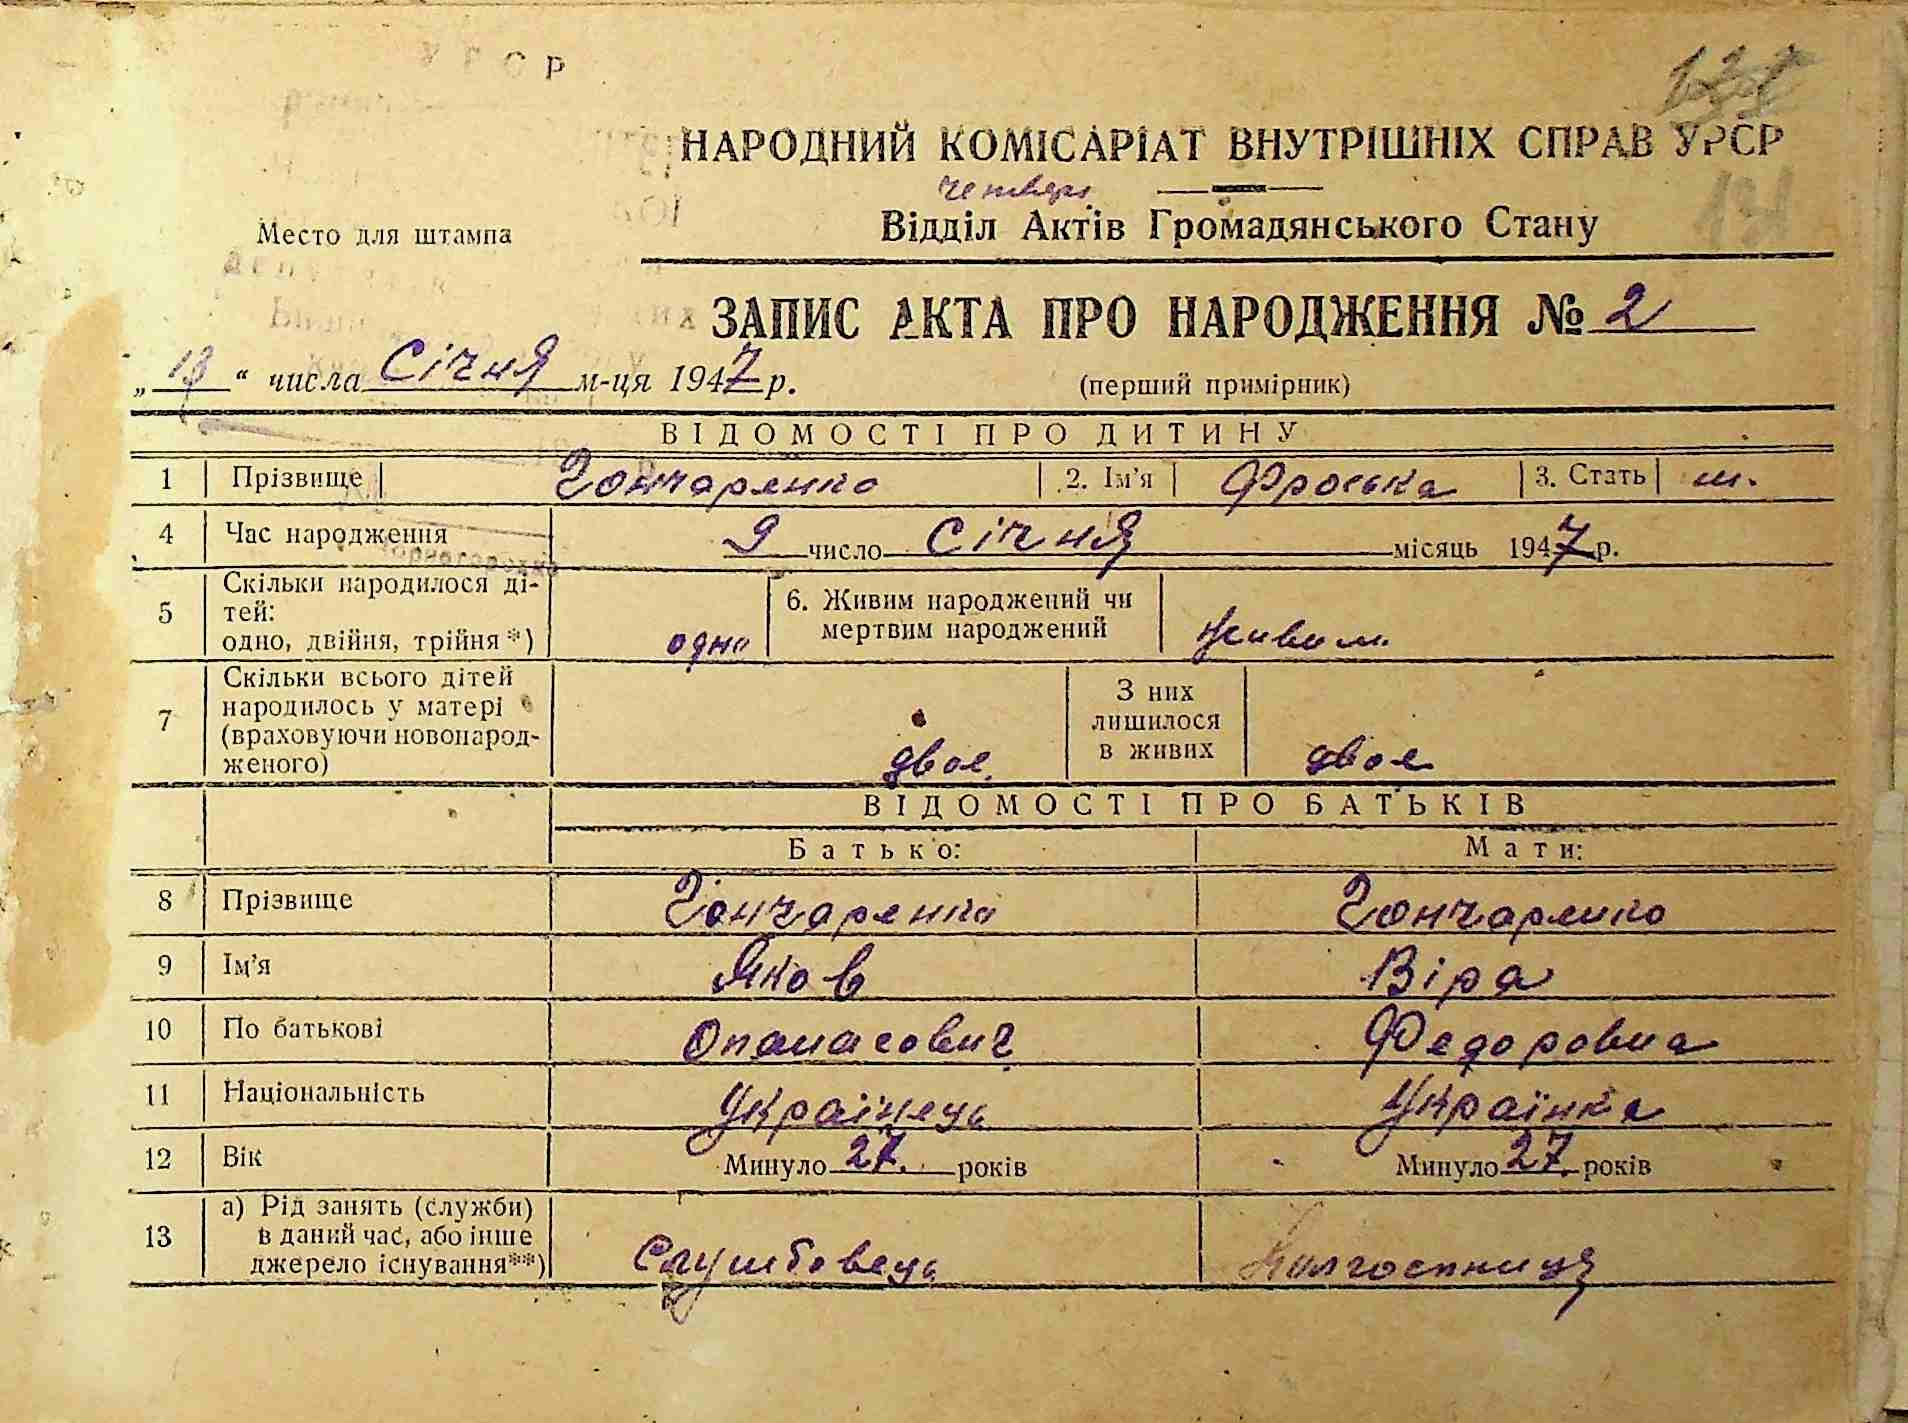 УРСР
НАРОДНИЙ КОМІСАРІАТ ВНУТРІШНІХ СПРАВ УРСР
Место для штампа
Відділ Актів Громадянського Стану
ЗАПИС АКТА ПРО НАРОДЖЕННЯ № 2
„13“ числа Січня м-ця 1947 р. (перший примірник)
ВІДОМОСТІ ПРО ДИТИНУ
1 Прізвище Гончаренко 2. Ім'я Фроська 3. Стать ж.
4 Час народження 9 число Січня місяць 1947 р.
5 Скільки народилося ді-
тей:
одно, двійня, трійня *) одно
6. Живим народжений чи
мертвим народжений живим
7 Скільки всього дітей
народилось у матері
(враховуючи новонарод-
женого) двоє
З них
лишилося
в живих двоє
ВІДОМОСТІ ПРО БАТЬКІВ
Батько: Мати:
8 Прізвище Гончаренко Гончаренко
9 Ім'я Яков Віра
10 По батькові Опанасович Федоровна
11 Національність Українець Українка
12 Вік Минуло 27. років Минуло 27. років
13 а) Рід занять (служби)
в даний час, або інше
джерело існування **) Службовець Колгоспниця